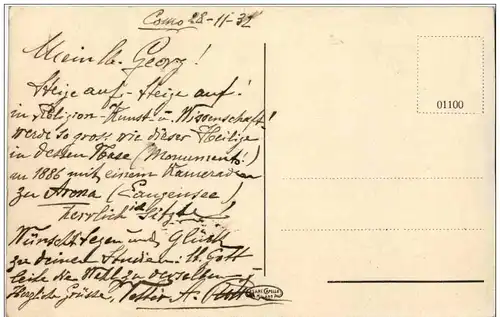 Como 28-11-32
Mein lb. Georg!
Steige auf - steige auf!
in Religion - Kunst u. Wissenschaft!
werde so gross wie dieser Heilige
in dessen Nase (Monument!)
in 1886 mit einem Kameraden
zu Arona (Langensee)
herrlich ich sitzte!
Wünscht Segen und Glück
zu deinen Studien: u. Gott
leite die Welt zu
Herzliche Grüsse, Vetter A.
01100